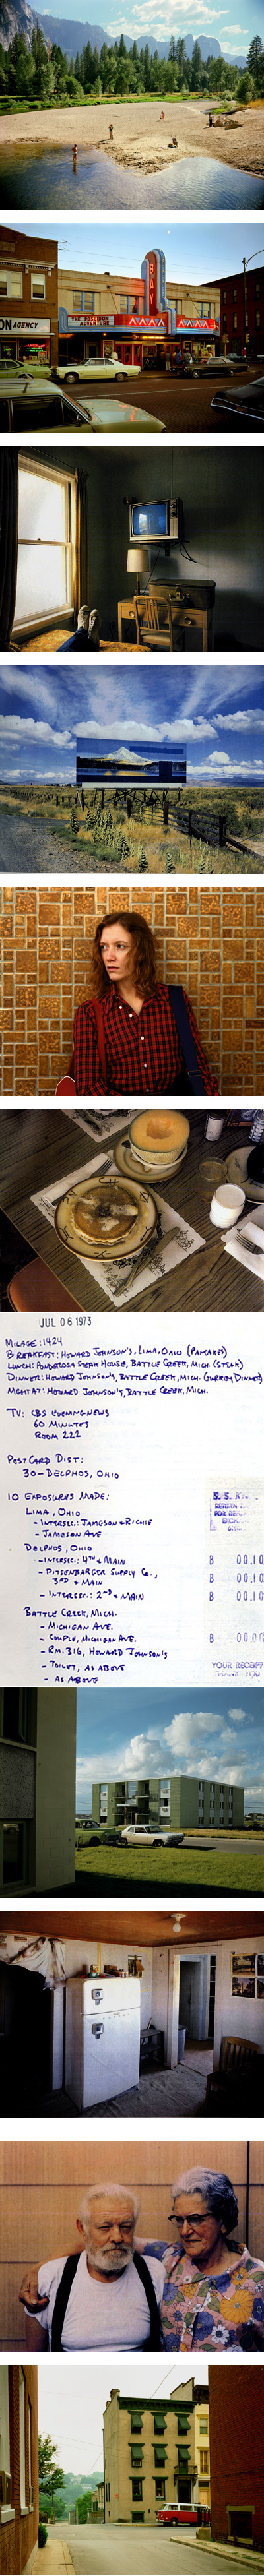 ON AGENCY
BAY
JUL 06 1973
MILAGE: 1424
BREAKFAST: HOWARD JOHNSON'S, LIMA, OHIO (PANCAKES)
LUNCH: PONDEROSA STEAK HOUSE, BATTLE CREEK, MICH. (STEAK)
DINNER: HOWARD JOHNSON'S, BATTLE CREEK, MICH. (TURKEY DINNER)
NIGHT AT: HOWARD JOHNSON'S, BATTLE CREEK, MICH.
TV: CBS EVENING NEWS
60 MINUTES
ROOM 222
POSTCARD DIST:
30 - DELPHOS, OHIO
10 EXPOSURES MADE:
LIMA, OHIO
- INTERSEC.: JAMESON + RICHIE
- JAMESON AVE
DELPHOS, OHIO
- INTERSEC.: 4TH + MAIN
B 00.10
- PITSENBARGER SUPPLY CO.,
B 00.10
3RD + MAIN
- INTERSEC.: 2ND + MAIN
B 00.10
BATTLE CREEK, MICH.
- MICHIGAN AVE.
- COUPLE, MICHIGAN AVE.
B
- RM. 316, HOWARD JOHNSON'S
- TOILET, AS ABOVE
YOUR RECEIPT
- AS ABOVE
THANK YOU